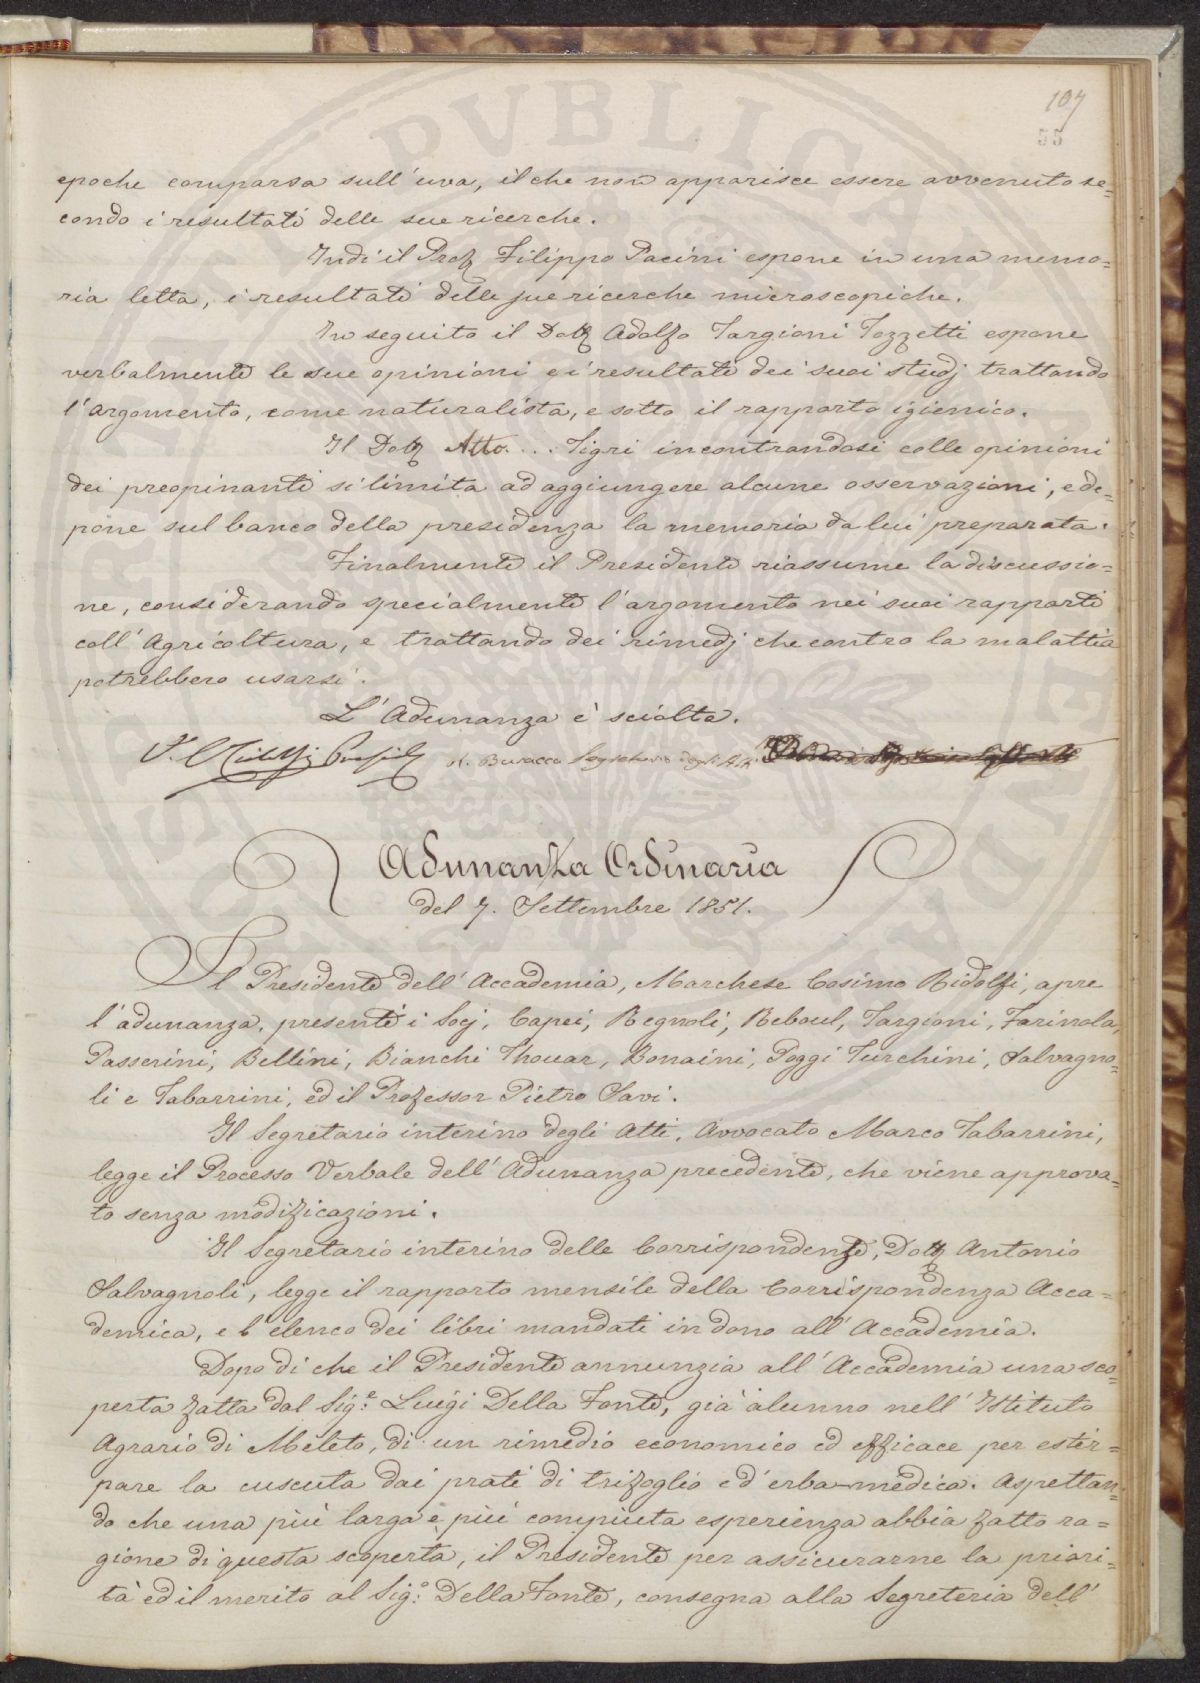 107
55
epoche comparsa sull'uva, il che non apparisce essere avvenuto se=
condo i resultati delle sue ricerche.
Indi il Prof Filippo Pacini espone in una memo=
ria letta, i resultati delle sue ricerche microscopiche.
In seguito il Dott Adolfo Targioni Tozzetti espone
verbalmente le sue opinioni e i resultati dei suoi studj trattando
l'argomento, come naturalista, e sotto il rapporto igienico.
Il Dott Atto.... Tigri incontrandosi colle opinioni
dei preopinanti si limita ad aggiungere alcune osservazioni, e de=
pone sul banco della presidenza la memoria da lui preparata.
Finalmente il Presidente riassume la discussio=
ne, considerando specialmente l'argomento nei suoi rapporti
coll'Agricoltura, e trattando dei rimedj che contro la malattia
potrebbero usarsi.
L'Adunanza è sciolta.
R. Busacca Segretario degli Atti
Adunanza Ordinaria
del 7. Settembre 1851.
Il Presidente dell'Accademia, Marchese Cosimo Ridolfi, apre
l'adunanza, presenti i Socj, Capei, Regnoli, Reboul, Targioni, Farinola,
Passerini, Bellini, Bianchi Thouar, Bonaini, Poggi Turchini, Salvagno=
li e Tabarrini, ed il Professor Pietro Savi.
Il Segretario interino degli Atti, Avvocato Marco Tabarrini,
legge il Processo Verbale dell'Adunanza precedente, che viene approva=
to senza modificazioni.
Il Segretario interino delle Corrispondenze, Dott Antonio
Salvagnoli, legge il rapporto mensile della Corrispondenza Acca=
demica, e l'elenco dei libri mandati in dono all'Accademia.
Dopo di che il Presidente annunzia all'Accademia una sco=
perta fatta dal Sig.e Luigi Della Fonte, già alunno nell'Istituto
Agrario di Meleto, di un rimedio economico ed efficace per estir=
pare la cuscuta dai prati di trifoglio ed'erba-medica. Aspettan=
do che una più larga e più compiuta esperienza abbia fatto ra=
gione di questa scoperta, il Presidente per assicurarne la priori=
tà ed il merito al Sig.e Della Fonte, consegna alla Segreteria dell'